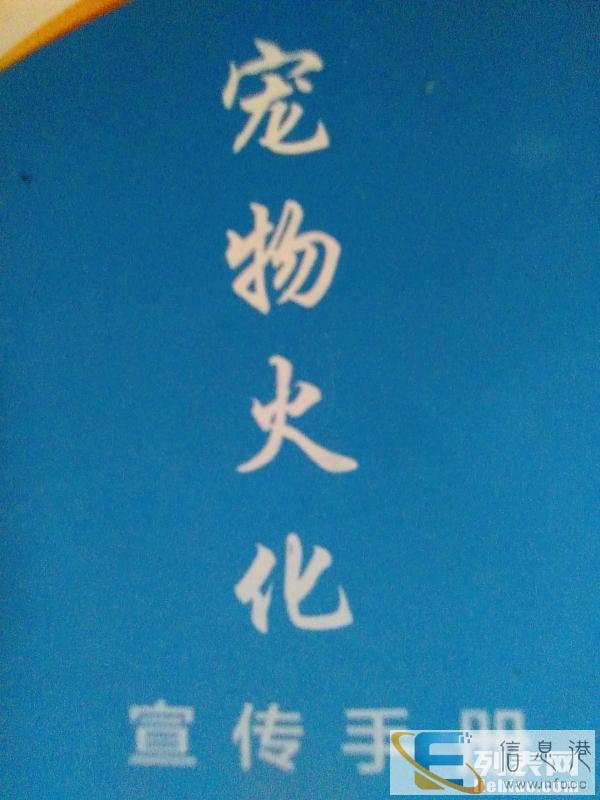 宠物火化
宣传手册
信息港
列表网
www.nfo.cc